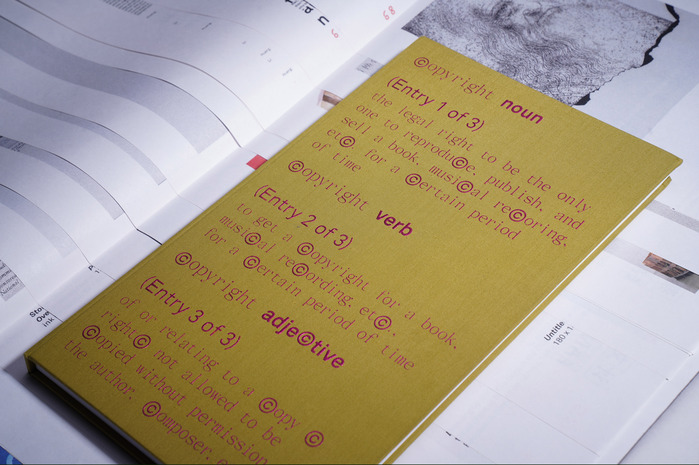 ©opyright noun
(Entry 1 of 3)
the legal right to be the only
one to reprodu©e, publish, and
sell a book, musi©al re©oring,
et©. for a ©ertain period
of time
©opyright verb
(Entry 2 of 3)
to get a ©opyright for a book,
musi©al re©ording, et©.,
for a ©ertain period of time
©opyright adje©tive
(Entry 3 of 3)
of or relating to a ©opy ©
right© not allowed to be
©opied without permission
the author, ©omposer,
Untitle
180 x 1
Ove
ink